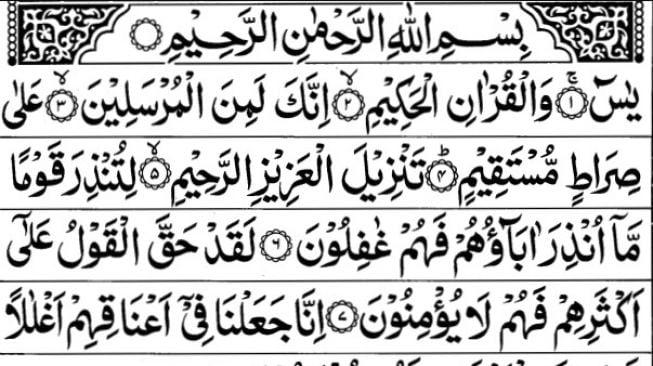 بِسْمِ اللهِ الرَّحْمٰنِ الرَّحِيْمِ
يٰسٓ ﴿۱﴾ وَالْقُرْاٰنِ الْحَكِيْمِ ﴿۲﴾ اِنَّكَ لَمِنَ الْمُرْسَلِيْنَ ﴿۳﴾ عَلٰى
صِرَاطٍ مُّسْتَقِيْمٍ ﴿۴﴾ تَنْزِيْلَ الْعَزِيْزِ الرَّحِيْمِ ﴿۵﴾ لِتُنْذِرَ قَوْمًا
مَّآ اُنْذِرَ اٰبَآؤُهُمْ فَهُمْ غٰفِلُوْنَ ﴿۶﴾ لَقَدْ حَقَّ الْقَوْلُ عَلٰٓى
اَكْثَرِهِمْ فَهُمْ لَا يُؤْمِنُوْنَ ﴿۷﴾ اِنَّا جَعَلْنَا فِيْٓ اَعْنَاقِهِمْ اَغْلٰلًا